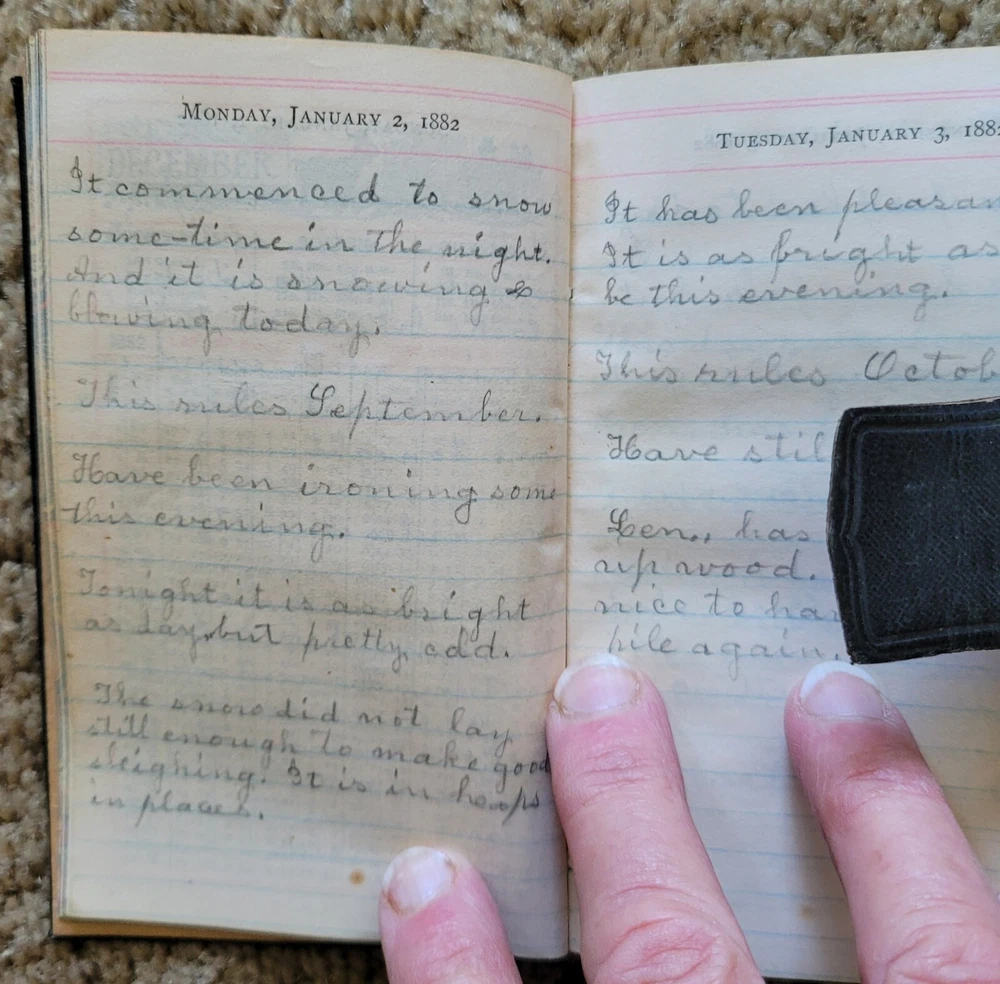 MONDAY, JANUARY 2, 1882
It commenced to snow
some-time in the night.
And it is snowing &
blowing today.
This rules September.
Have been ironing some
this evening.
Tonight it is as bright
as day, but pretty cold.
The snow did not lay
still enough to make good
sleighing. It is in heaps
in places.
TUESDAY, JANUARY 3, 1882
It has been pleasan
It is as bright as
be this evening.
This rules Octob
Have stil
Len., has
up wood.
nice to ha
pile again.